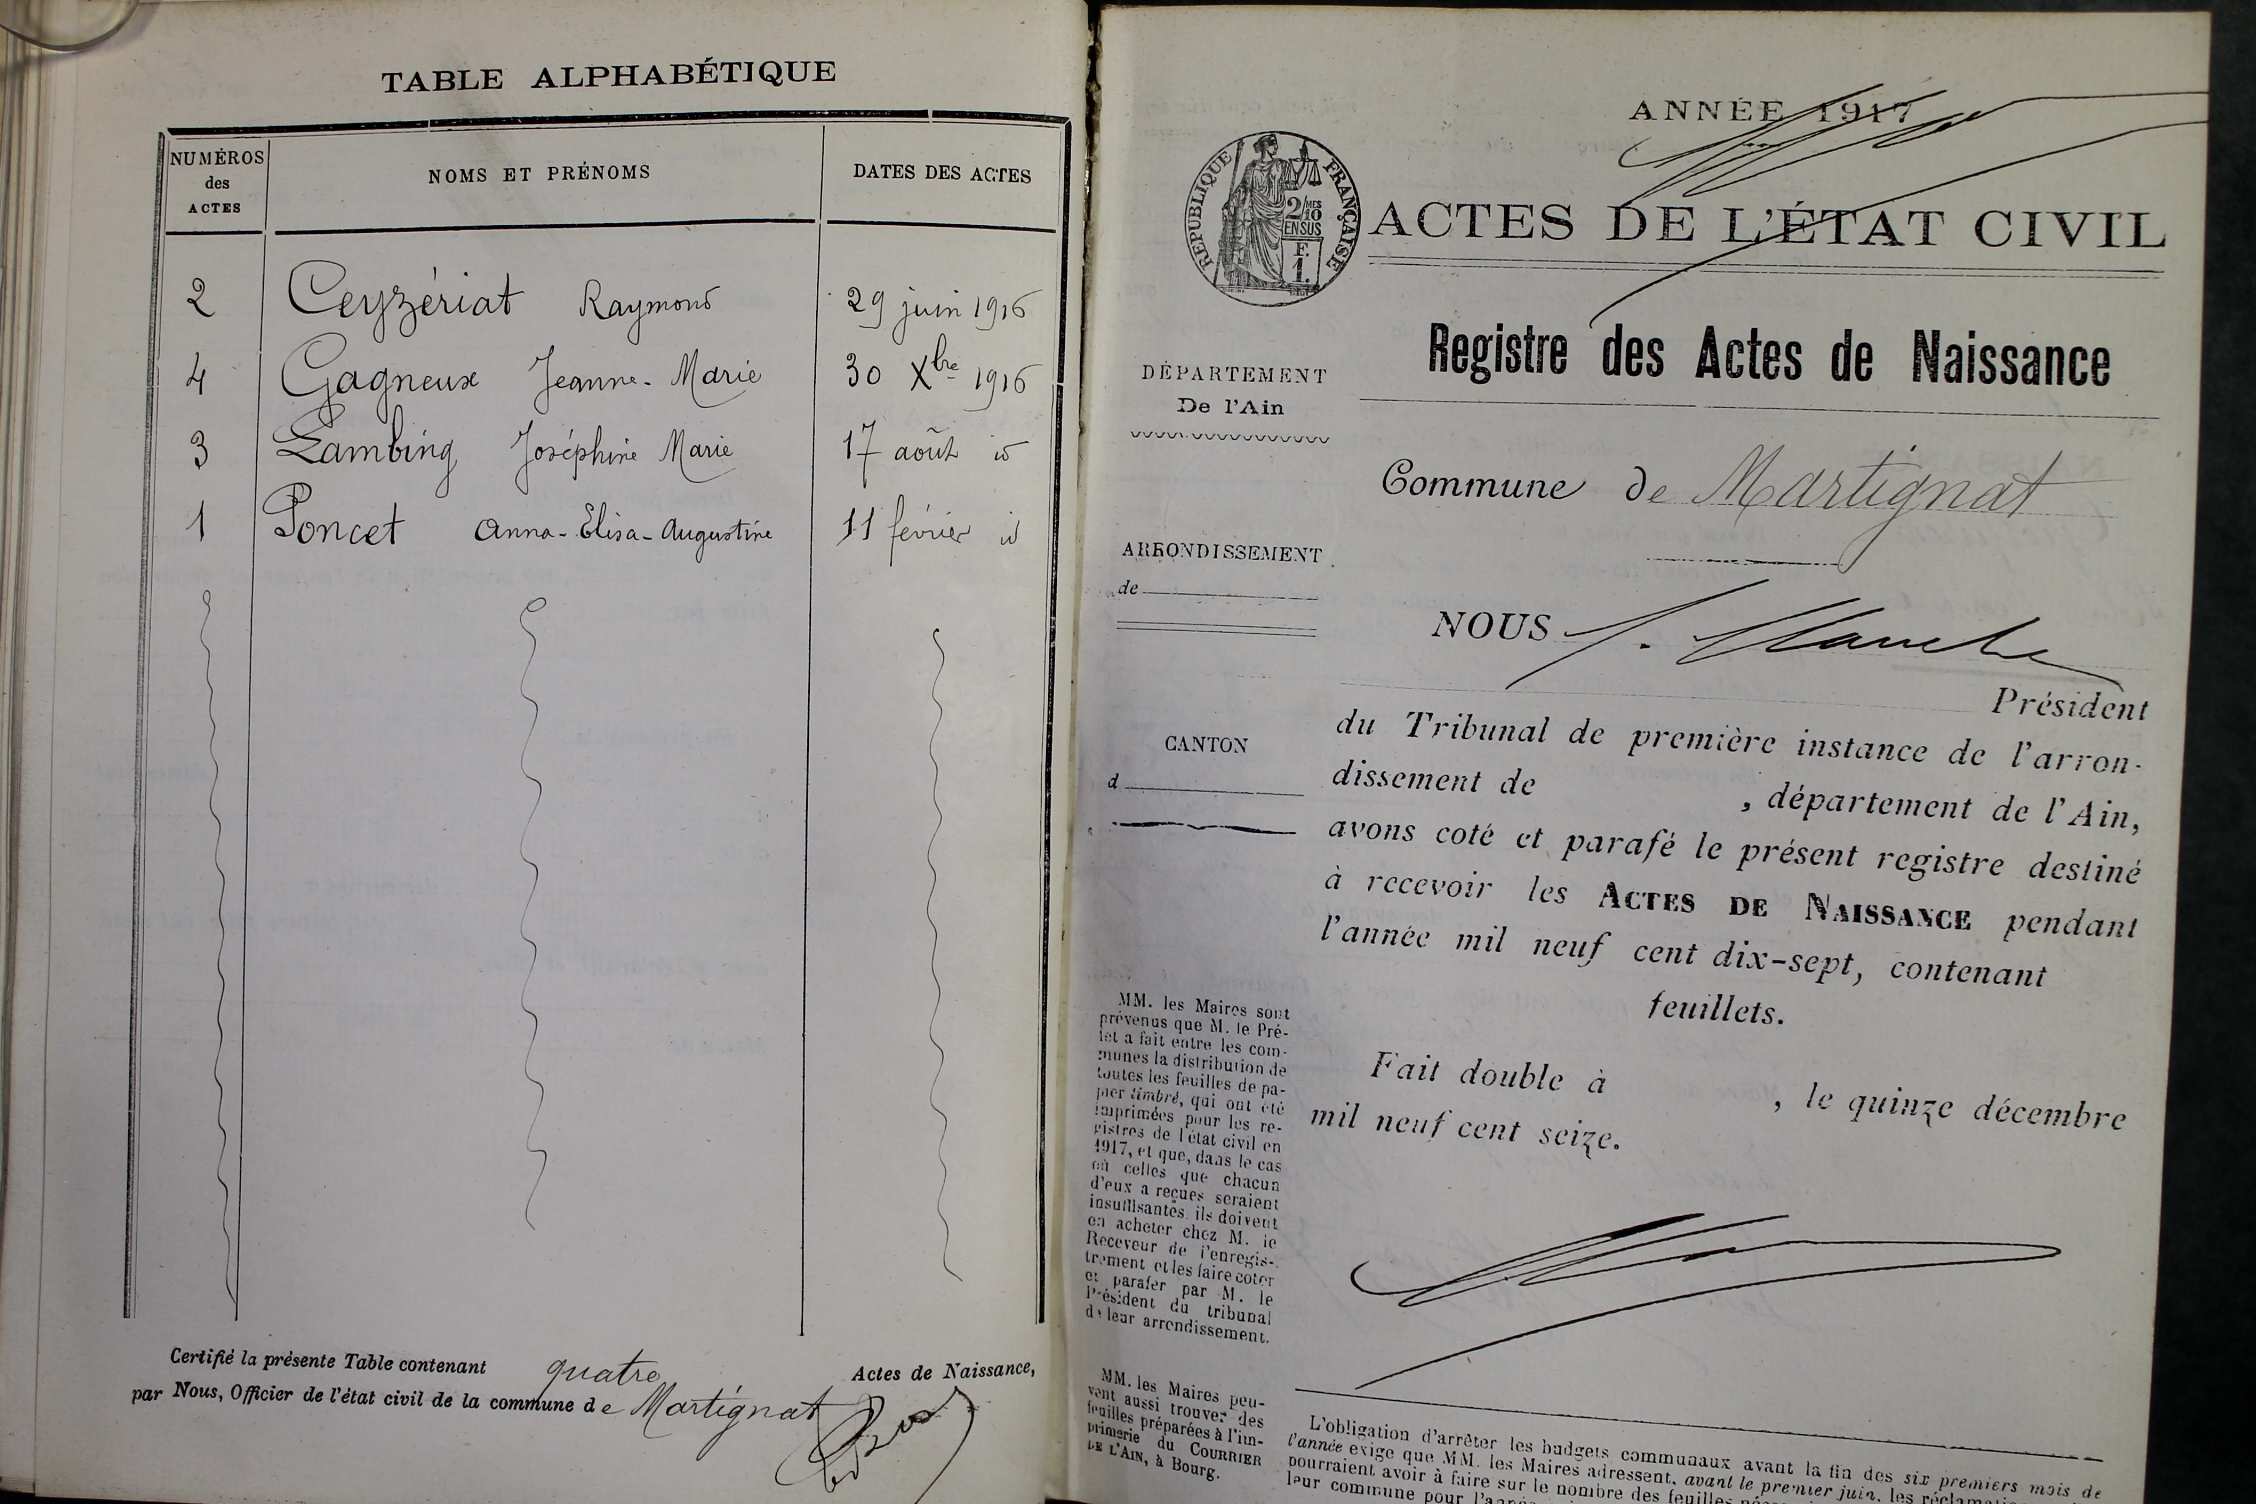 TABLE ALPHABÉTIQUE
NUMÉROS
des
ACTES
NOMS ET PRÉNOMS
DATES DES ACTES
2 Ceyzériat Raymond 29 juin 1916
4 Gagneux Jeanne-Marie 30 Xbre 1916
3 Lambing Joséphine Marie 17 août id
1 Poncet Anna-Elisa-Augustine 11 février id
Certifié la présente Table contenant quatre Actes de Naissance,
par Nous, Officier de l'état civil de la commune de Martignat
ANNÉE 1917
RÉPUBLIQUE FRANÇAISE
2/MES
10
EN SUS
F.
1.
ACTES DE L'ÉTAT CIVIL
Registre des Actes de Naissance
DÉPARTEMENT
De l'Ain
Commune de Martignat
ARRONDISSEMENT
de
NOUS
Président
CANTON
d
du Tribunal de première instance de l'arron-
dissement de , département de l'Ain,
avons coté et parafé le présent registre destiné
à recevoir les ACTES DE NAISSANCE pendant
l'année mil neuf cent dix-sept, contenant
feuillets.
Fait double à , le quinze décembre
mil neuf cent seize.
MM. les Maires sont
prévenus que M. le Pré-
fet a fait entre les com-
munes la distribution de
toutes les feuilles de pa-
pier timbré, qui ont été
imprimées pour les re-
gistres de l'état civil en
1917, et que, dans le cas
où celles que chacun
d'eux a reçues seraient
insuffisantes, ils doivent
en acheter chez M. le
Receveur de l'enregis-
trement et les faire coter
et parafer par M. le
Président du tribunal
de leur arrondissement.
MM. les Maires peu-
vent aussi trouver des
feuilles préparées à l'im-
primerie du COURRIER
DE L'AIN, à Bourg.
L'obligation d'arrêter les budgets communaux avant la fin des six premiers mois de
l'année exige que MM. les Maires adressent, avant le premier juin, les
pourraient avoir à faire sur le nombre des feuilles
leur commune pour l'année